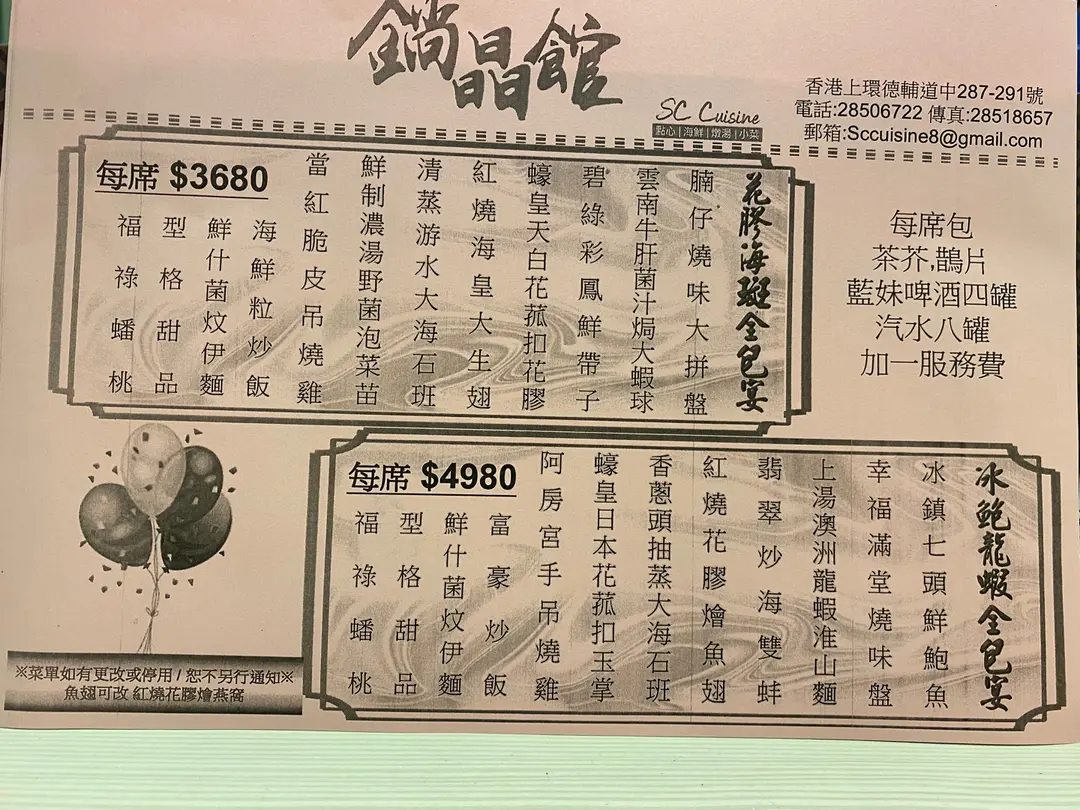 鐫晶館
SC Cuisine
點心|海鮮|燉湯|小菜
香港上環德輔道中287-291號
電話:28506722 傳真:28518657
郵箱:Sccuisine8@gmail.com
花膠海斑全包宴
腩仔燒味大拼盤
雲南牛肝菌汁焗大蝦球
碧綠彩鳳鮮帶子
蠔皇天白花菰扣花膠
紅燒海皇大生翅
清蒸游水大海石班
鮮制濃湯野菌泡菜苗
當紅脆皮吊燒雞
海鮮粒炒飯
鮮什菌炆伊麵
型格甜品
福祿蟠桃
每席 $3680
每席包
茶芥,鵲片
藍妹啤酒四罐
汽水八罐
加一服務費
冰鮑龍蝦全包宴
冰鎮七頭鮮鮑魚
幸福滿堂燒味盤
上湯澳洲龍蝦淮山麵
翡翠炒海雙蚌
紅燒花膠燴魚翅
香蔥頭抽蒸大海石班
蠔皇日本花菰扣玉掌
阿房宮手吊燒雞
富豪炒飯
鮮什菌炆伊麵
型格甜品
福祿蟠桃
每席 $4980
※菜單如有更改或停用 / 恕不另行通知※
魚翅可改 紅燒花膠燴燕窩